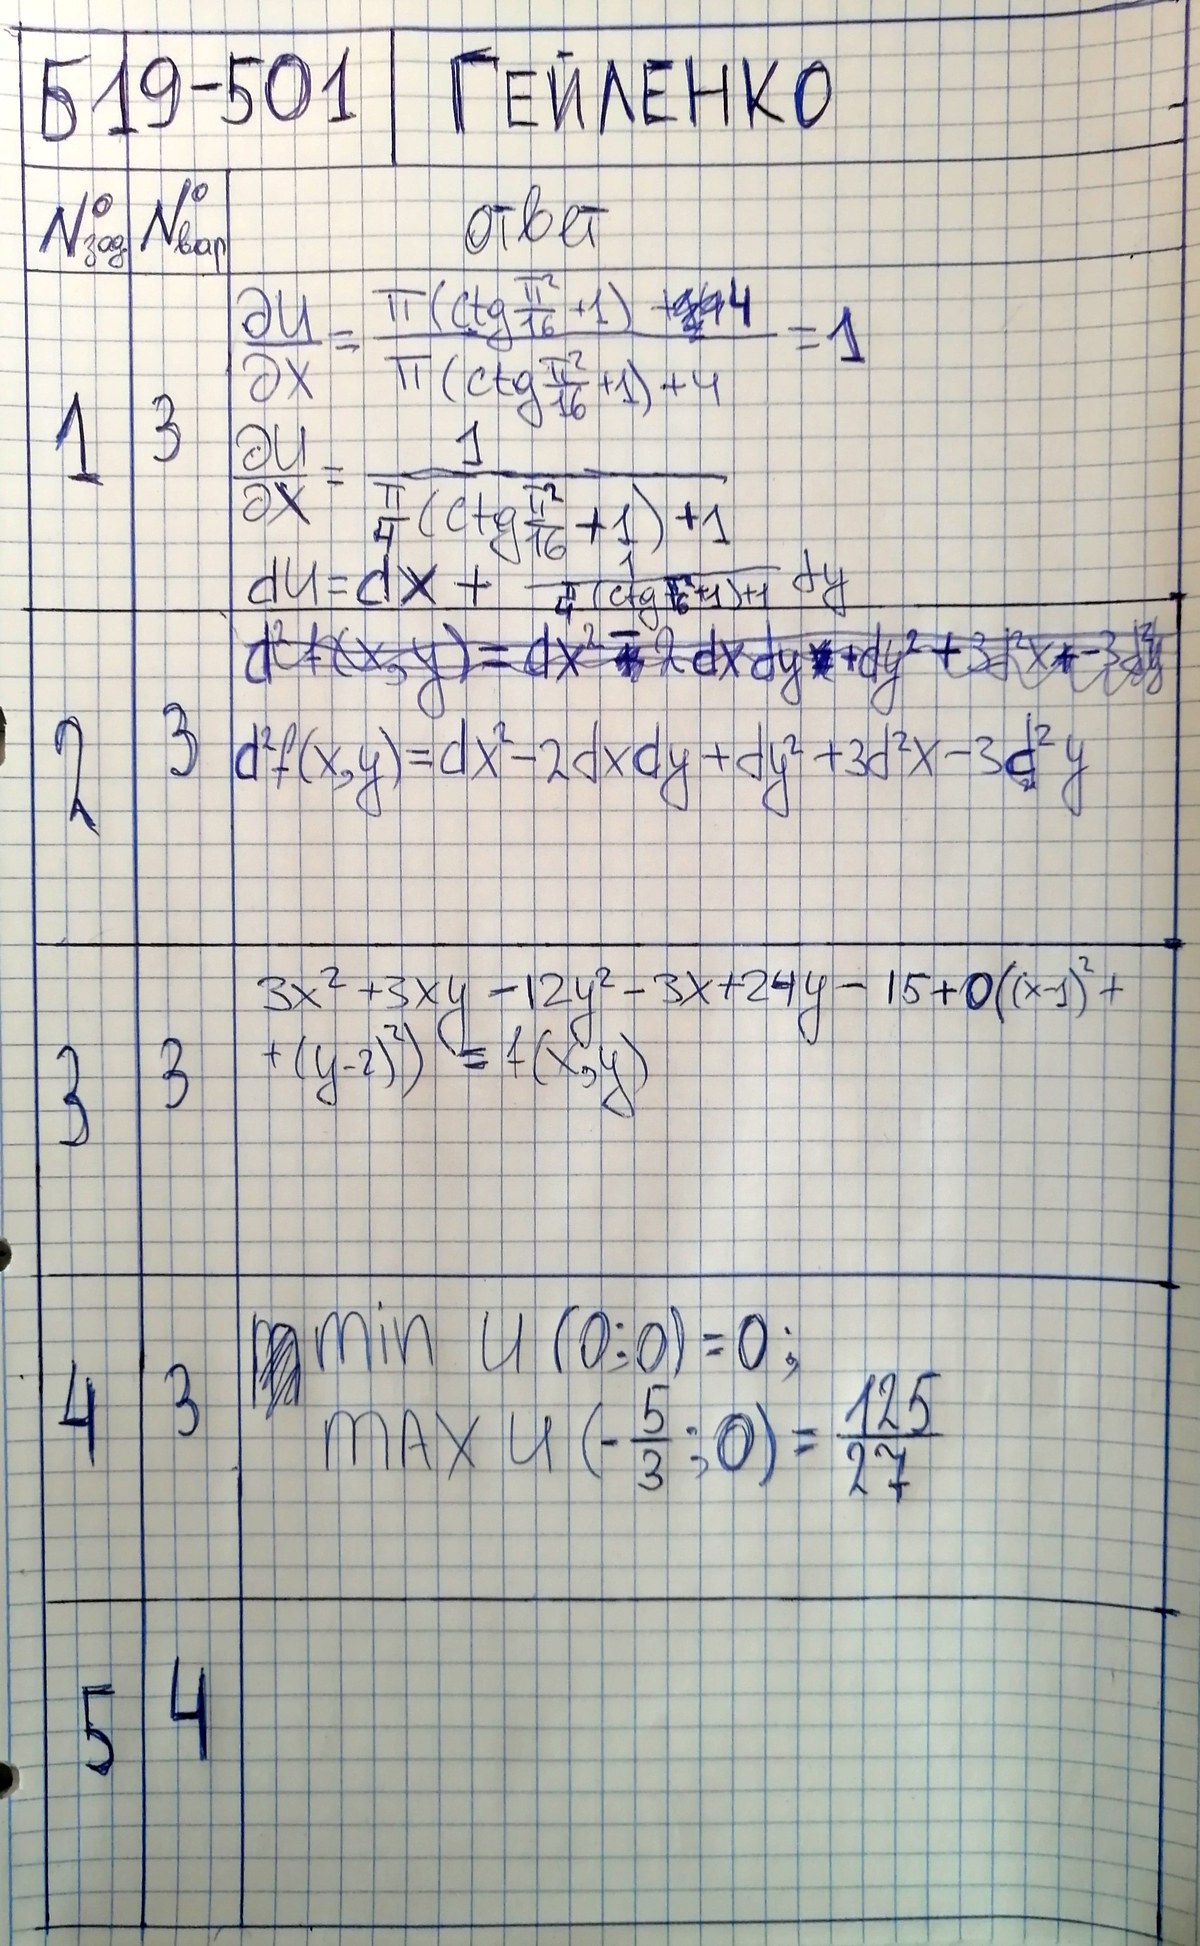 Б19-501 | ГЕЙЛЕНКО
№ зад. № вар ответ
1 3
∂U/∂X = (π(ctg π²/16 + 1) + 4)/(π(ctg π²/16 + 1) + 4) = 1
∂U/∂X = 1/(π/4 (ctg π²/16 + 1) + 1)
dU = dx + 1/(π/4 (ctg π²/16 + 1) + 1) dy
2 3
d²f(x,y) = dx² - 2dxdy + dy² + 3d²x - 3d²y
d²f(x,y) = dx² - 2dxdy + dy² + 3d²x - 3d²y
3 3
3x² + 3xy - 12y² - 3x + 24y - 15 + o((x-1)² +
+ (y-2)²) = f(x,y)
4 3
min U (0;0) = 0;
MAX U (-5/3;0) = 125/27
5 4